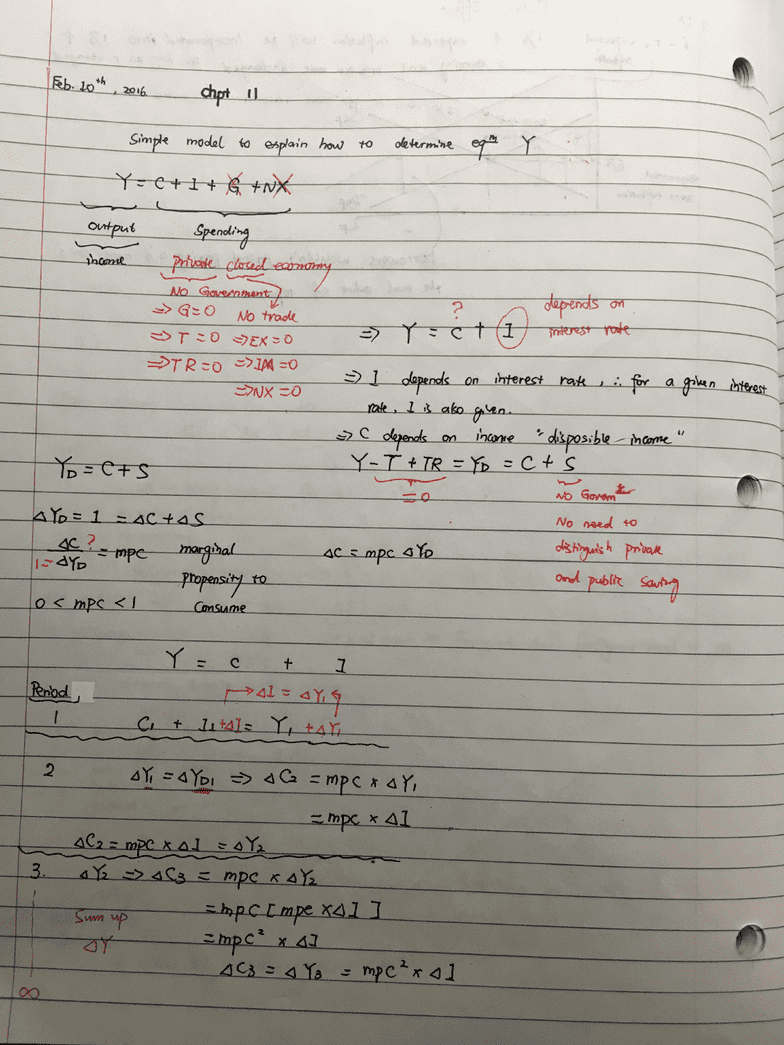 Feb. 10th, 2016. chpt 11
Simple model to explain how to determine eqm Y
Y = C + I + G + NX
output Spending
income private closed economy
No Government No trade
⇒ G=0
⇒ T = 0 ⇒ EX = 0
⇒ TR = 0 ⇒ IM = 0
⇒ NX = 0
?
⇒ Y = C + I depends on
interest rate
⇒ I depends on interest rate, ∴ for a given interest
rate, I is also given.
⇒ C depends on income "disposible-income"
Y - T + TR = YD = C + S
= 0
No Governmt
No need to
distinguish private
and public saving
YD = C + S
ΔYD = 1 = ΔC + ΔS
ΔC ?
1 = ΔYD = mpc marginal
propensity to
consume
ΔC = mpc ΔYD
0 < mpc < 1
Y = C + I
Period
→ΔI = ΔY1
1 C1 + I1 +ΔI = Y1 +ΔY1
2 ΔY1 = ΔYD1 ⇒ ΔC2 = mpc x ΔY1
= mpc x ΔI
ΔC2 = mpc x ΔI = ΔY2
3. ΔY2 ⇒ ΔC3 = mpc x ΔY2
= mpc [ mpc x ΔI ]
= mpc² x ΔI
ΔC3 = ΔY3 = mpc² x ΔI
Sum up
ΔY
∞